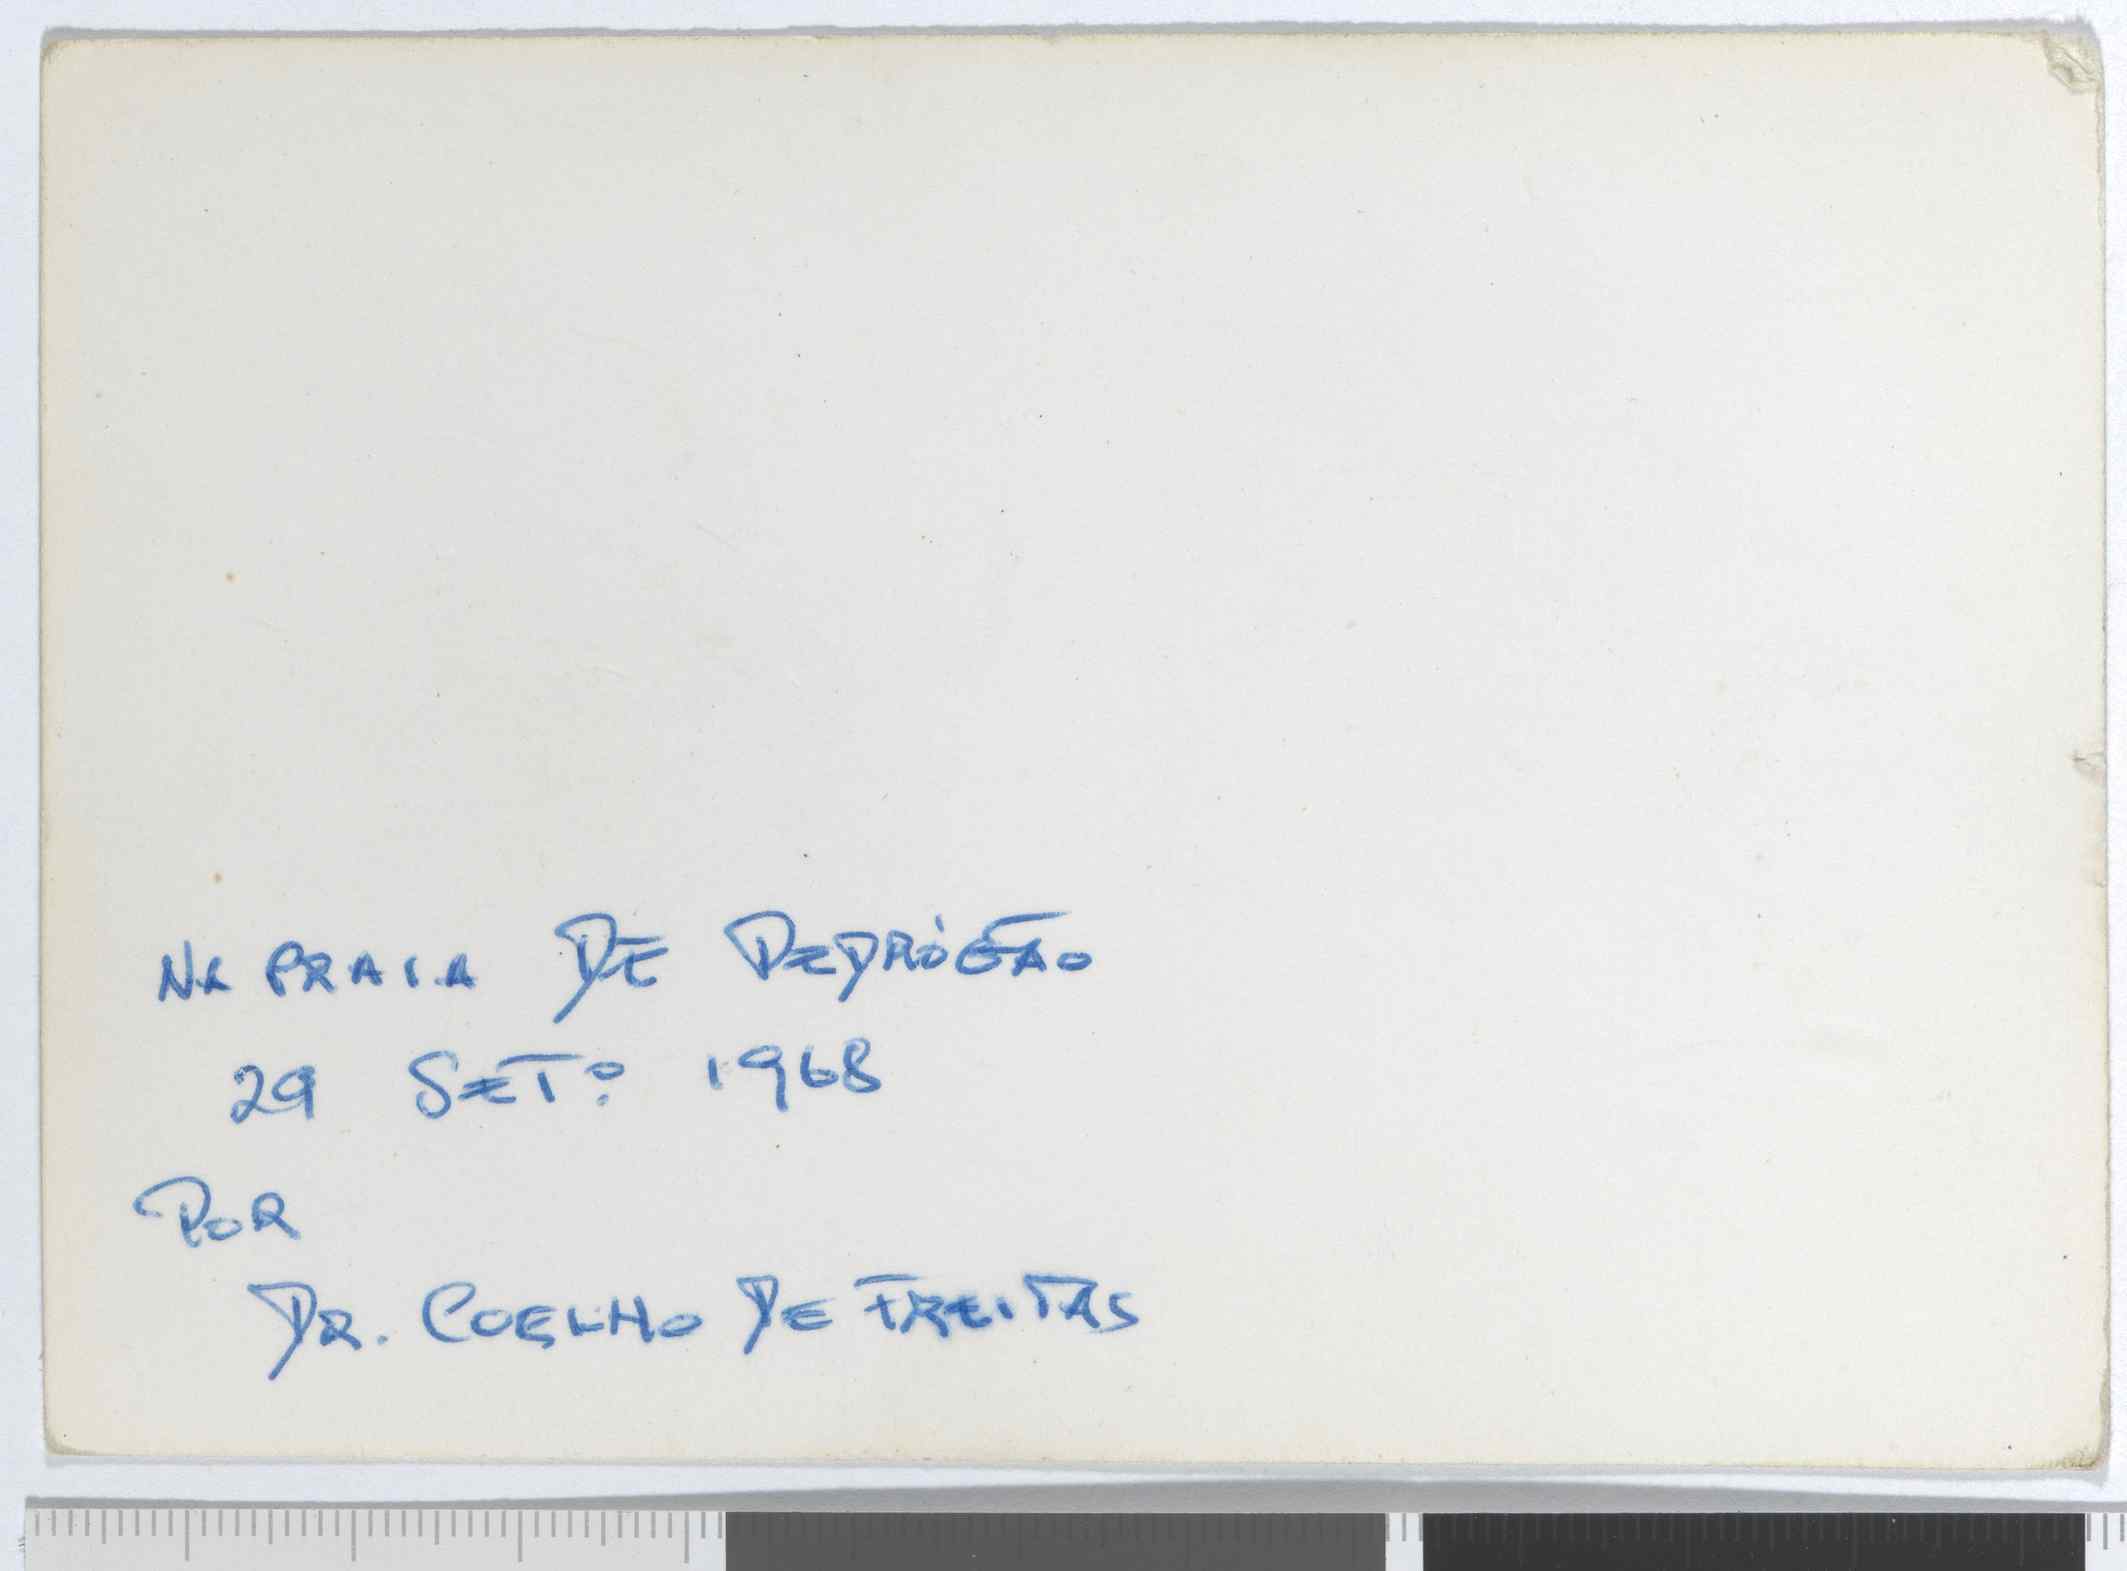 NA PRAIA DE PEDRÓGÃO
29 SETº 1968
POR
DR. COELHO DE FREITAS